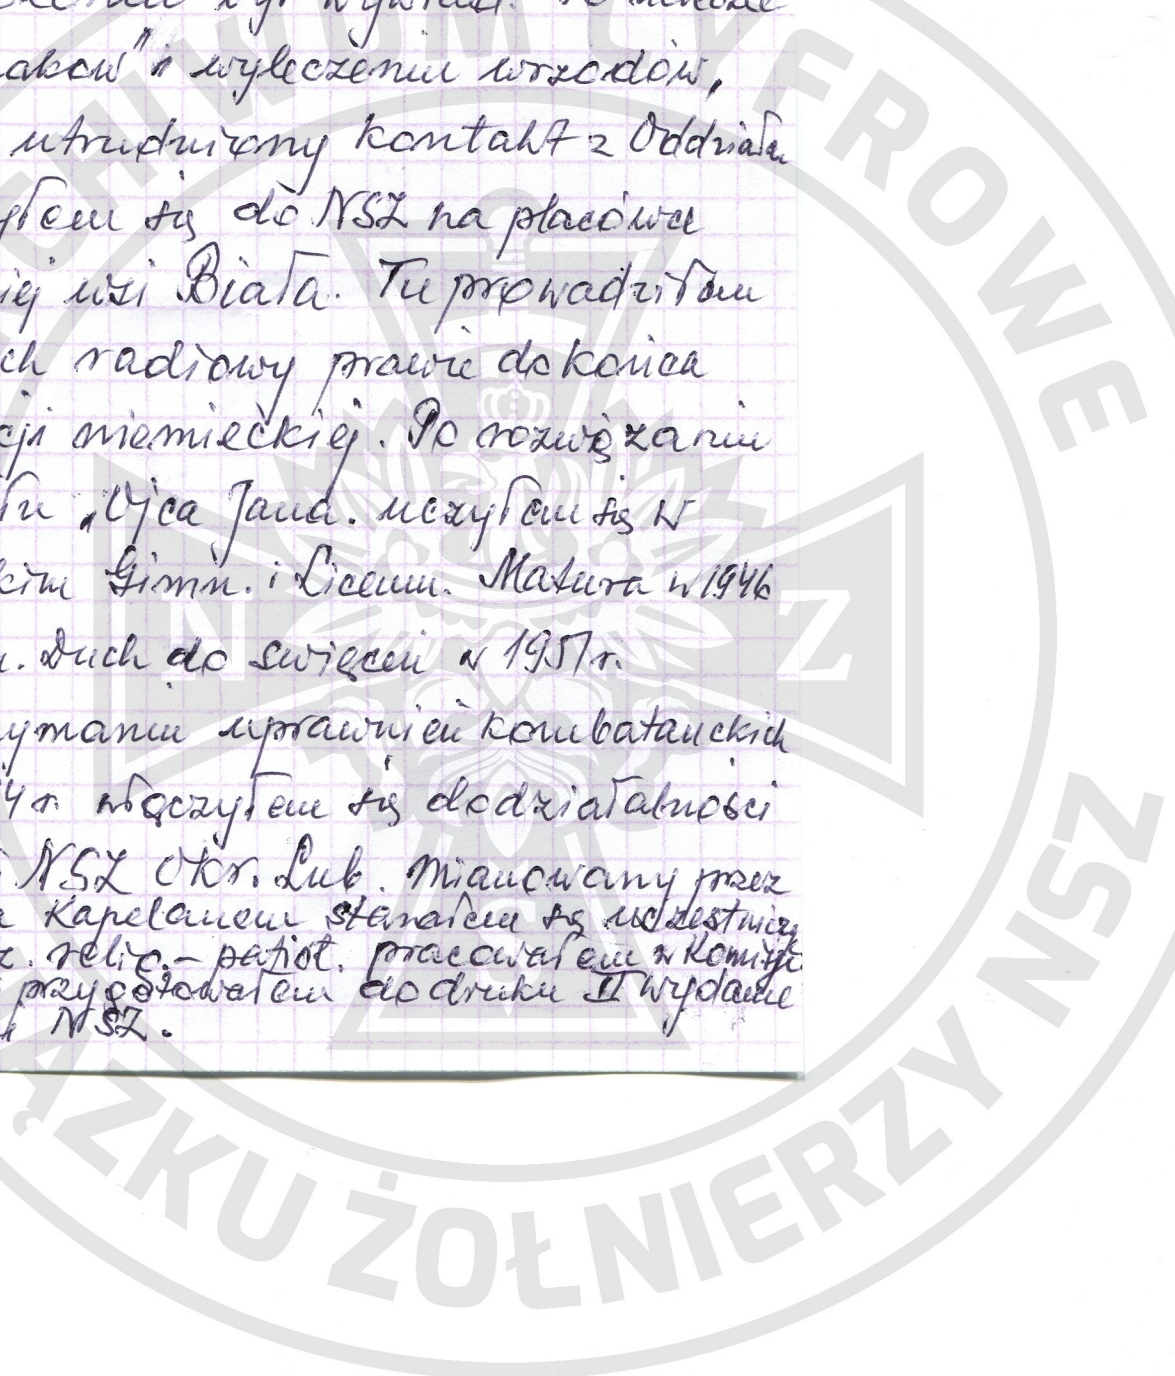 był wywiad.
aków" i wyleczeniu wrzodów,
utrudniony kontakt z Oddziałem
yłem się do NSZ na placówce
iej wsi Biała. Tu prowadziłem
ch radiowy prawie do końca
cji niemieckiej. Po rozwiązaniu
łu „Ojca Jana. uczyłem się w
kim Gimn. i Liceum. Matura w 1946
. Duch do święceń w 1951 r.
ymaniu uprawnień kombatanckich
4 r. włączyłem się do działalności
NSZ Okr. Lub. mianowany przez
Kapelanem starałem się uczestniczy
z. relig.- patriot. pracowałem w Komisji
przygotowałem do druku II wydanie
NSZ.
CHIWUM CYFROWE
ĄZKU ŻOŁNIERZY NSZ
N Z